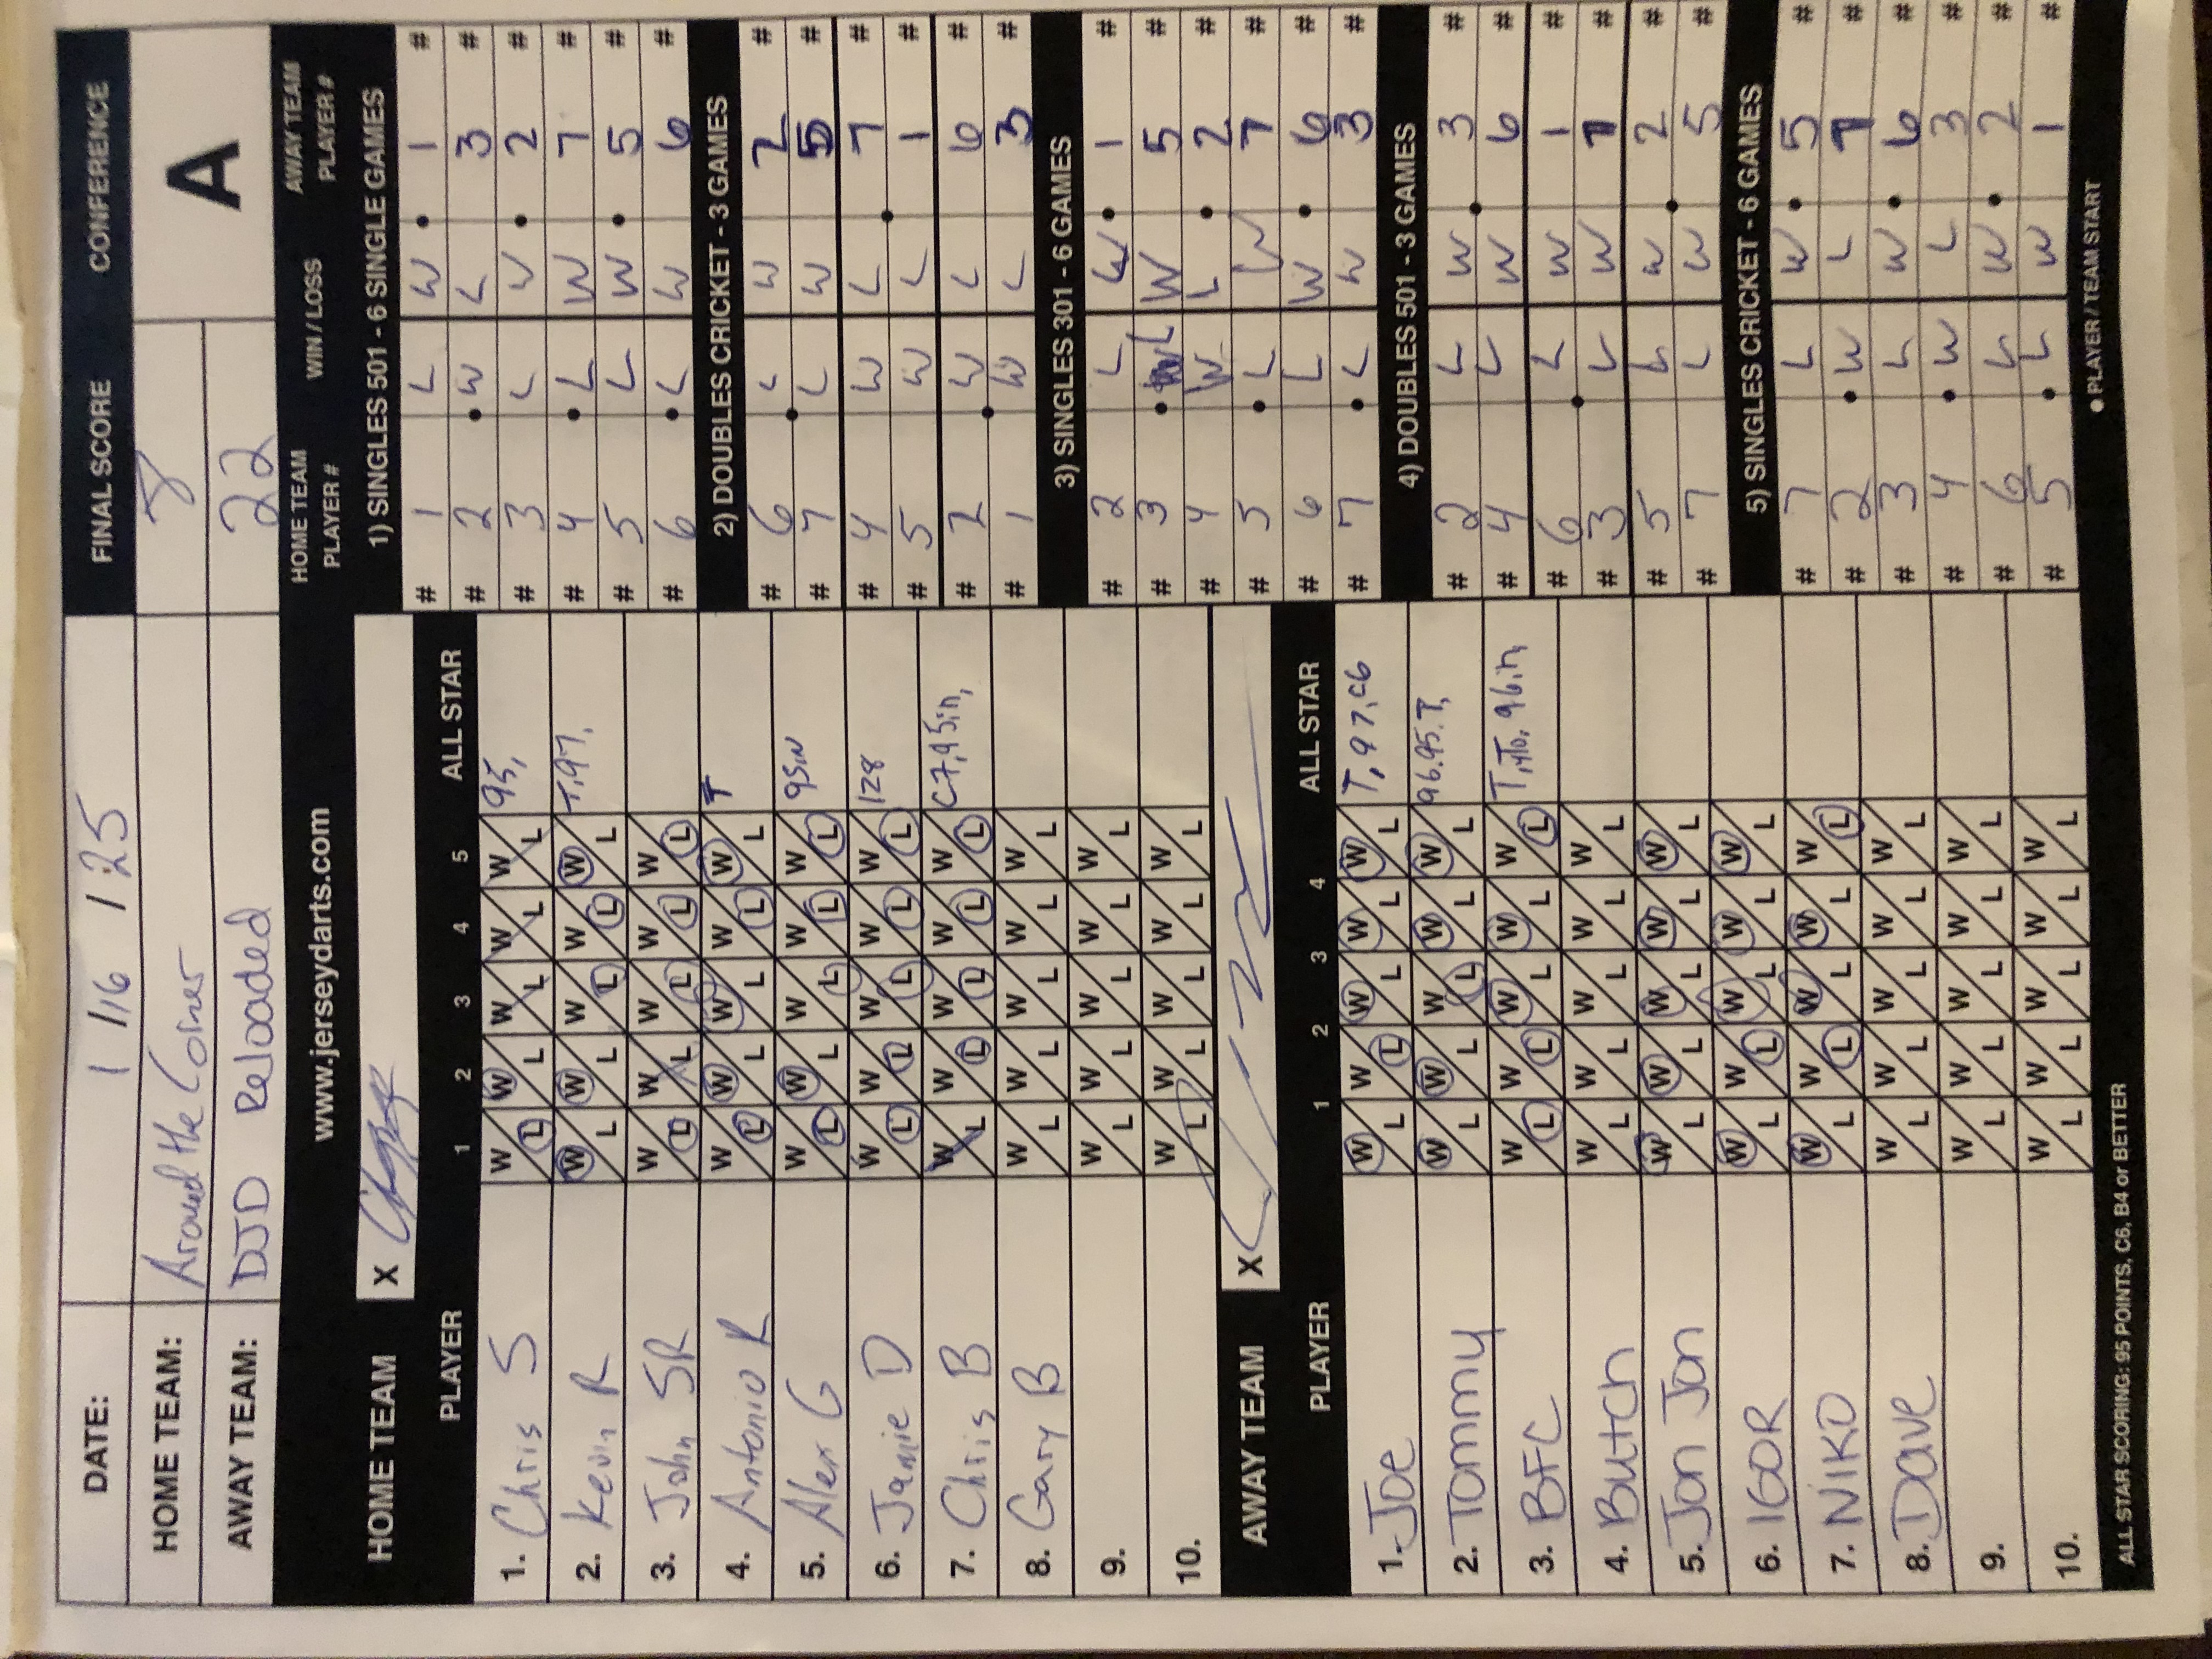 DATE: 1 / 16 / 25 FINAL SCORE CONFERENCE
HOME TEAM: Around the Corner 8 A
AWAY TEAM: DJD Reloaded 22
www.jerseydarts.com
HOME TEAM PLAYER # WIN / LOSS AWAY TEAM PLAYER #
HOME TEAM X
PLAYER 1 2 3 4 5 ALL STAR
1. Chris S W L W L W L W L W L 95,
2. Kevin R W L W L W L W L W L T, 97,
3. John SR W L W L W L W L W L
4. Antonio R W L W L W L W L W L T
5. Alex G W L W L W L W L W L 95in
6. Jamie D W L W L W L W L W L 128
7. Chris B W L W L W L W L W L C7, 95in,
8. Gary B W L W L W L W L W L
9. W L W L W L W L W L
10. W L W L W L W L W L
AWAY TEAM X
PLAYER 1 2 3 4 ALL STAR
1. Joe W L W L W L W L W L T, 97, C6
2. Tommy W L W L W L W L W L 96. 95. T,
3. BFC W L W L W L W L W L T, 96in
4. Butch W L W L W L W L W L
5. Jon Jon W L W L W L W L W L
6. IGOR W L W L W L W L W L
7. NIKO W L W L W L W L W L
8. Dave W L W L W L W L W L
9. W L W L W L W L W L
10. W L W L W L W L W L
ALL STAR SCORING: 95 POINTS, C6, B4 or BETTER
1) SINGLES 501 - 6 SINGLE GAMES
# 1 L W 1 #
# 2 W L 3 #
# 3 L W 2 #
# 4 L W 7 #
# 5 L W 5 #
# 6 L W 6 #
2) DOUBLES CRICKET - 3 GAMES
# 6 L W 2 #
# 7 L W 5 #
# 4 W L 7 #
# 5 W L 1 #
# 2 W L 6 #
# 1 W L 3 #
3) SINGLES 301 - 6 GAMES
# 2 L W 1 #
# 3 L W 5 #
# 4 W L 2 #
# 5 L W 7 #
# 6 L W 6 #
# 7 L W 3 #
4) DOUBLES 501 - 3 GAMES
# 2 L W 3 #
# 4 L W 6 #
# 6 L W 1 #
# 3 L W 7 #
# 5 L W 2 #
# 7 L W 5 #
5) SINGLES CRICKET - 6 GAMES
# 7 L W 5 #
# 2 W L 7 #
# 3 L W 6 #
# 4 W L 3 #
# 6 L W 2 #
# 5 L W 1 #
● PLAYER / TEAM START